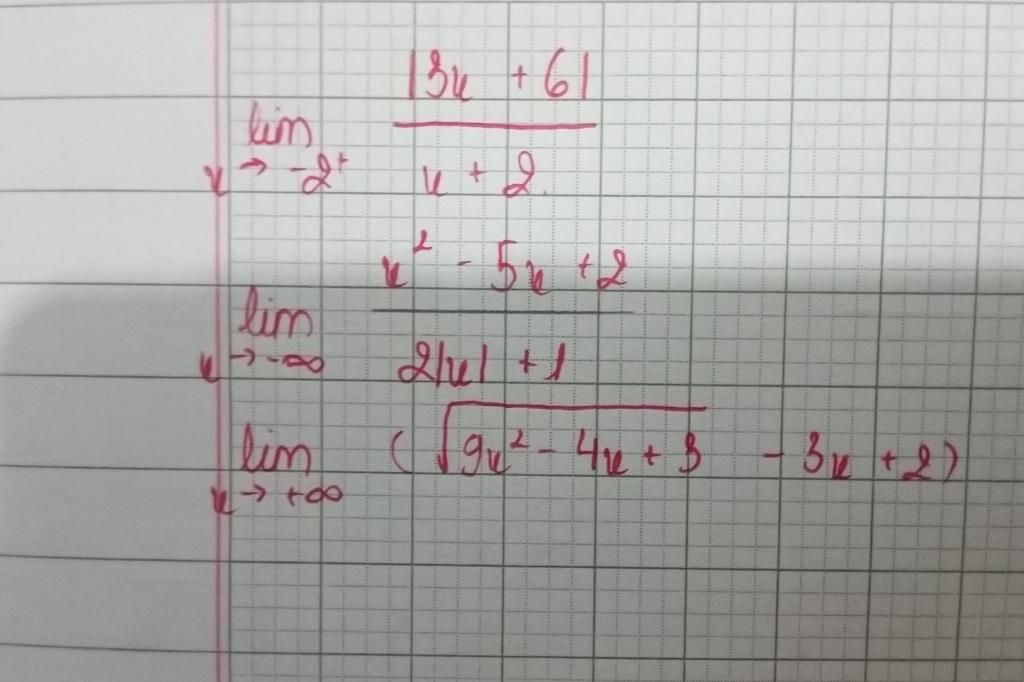 lim x → -2⁺ |3x + 6| / x + 2
lim x → -∞ x² - 5x + 2 / 2|x| + 1
lim x → +∞ (√(9x² - 4x + 3) - 3x + 2)